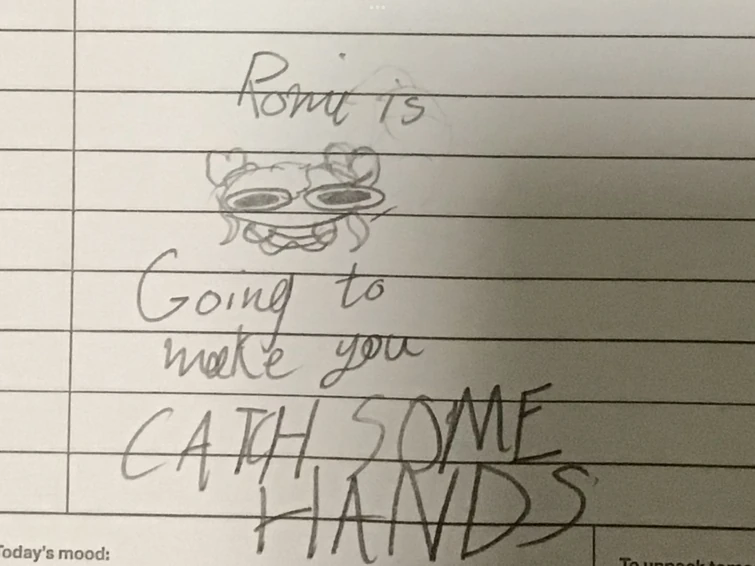 Romi is
Going to
make you
CATCH SOME
HANDS
Today's mood: